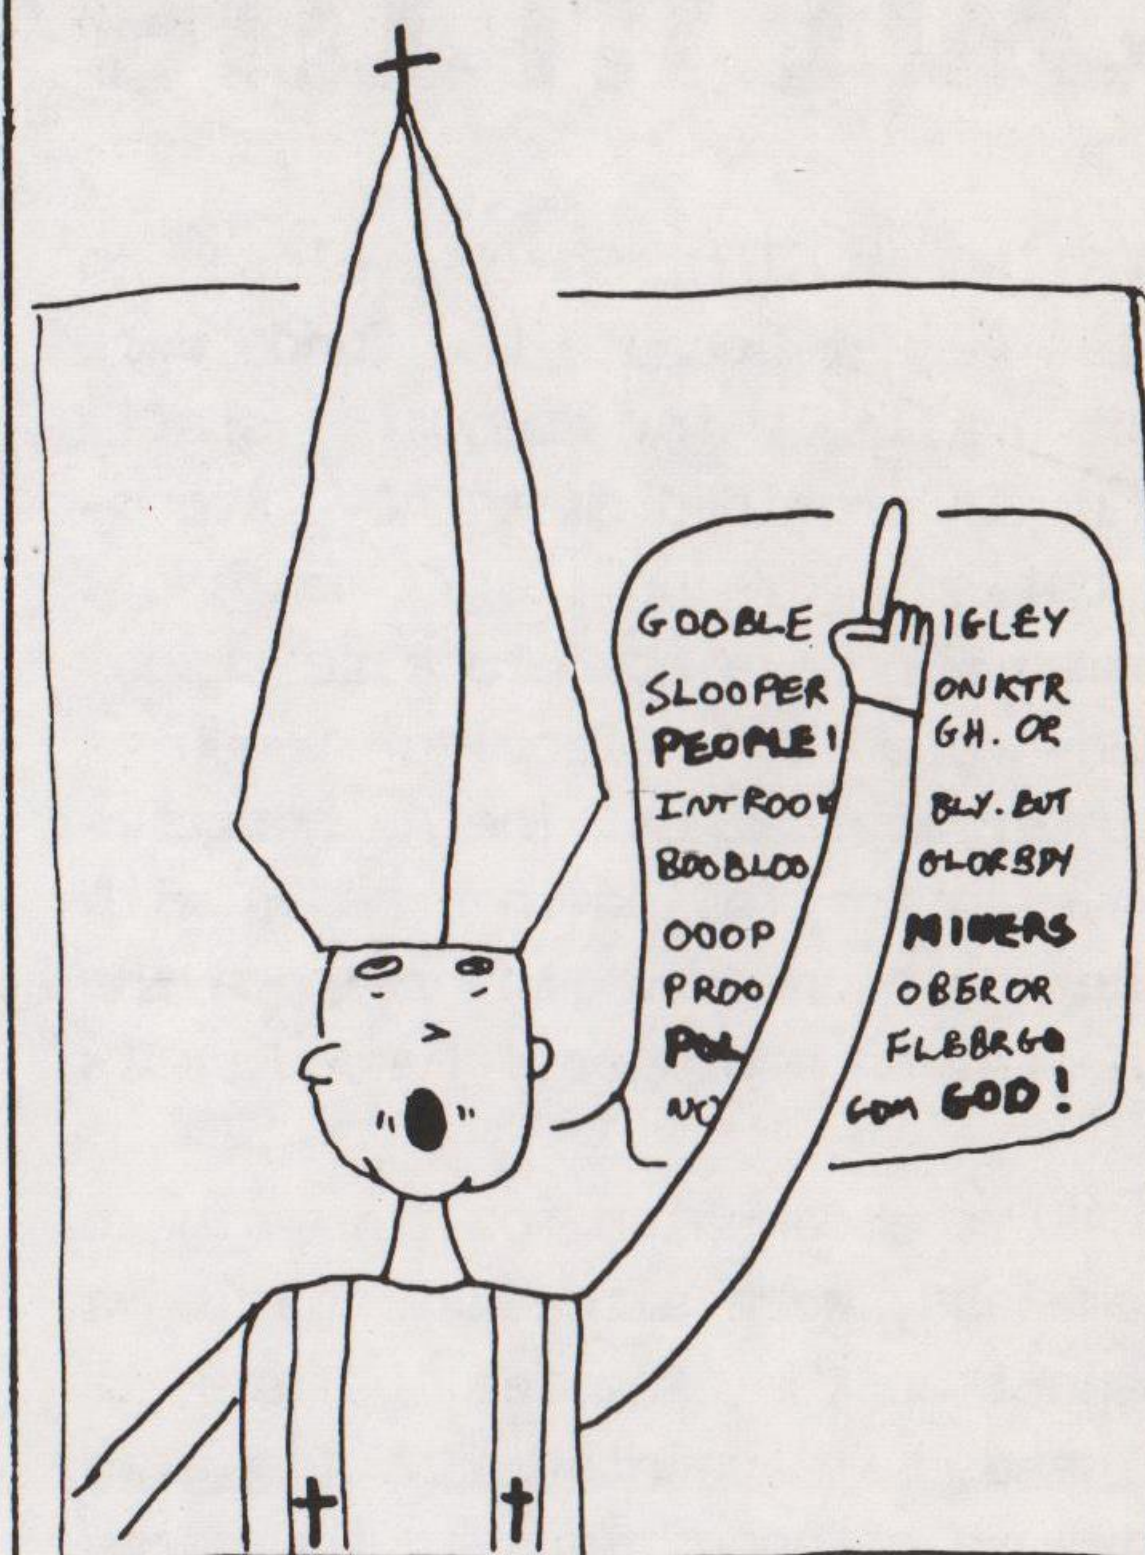 GOOBLE MIGLEY
SLOOPER ONKTR
PEOPLE! GH. OR
INTROOK BLY. BUT
BOOBLOO GLORBDY
OOOP MINERS
PROO OBEROR
FLBBRGO
NO GOM GOD!